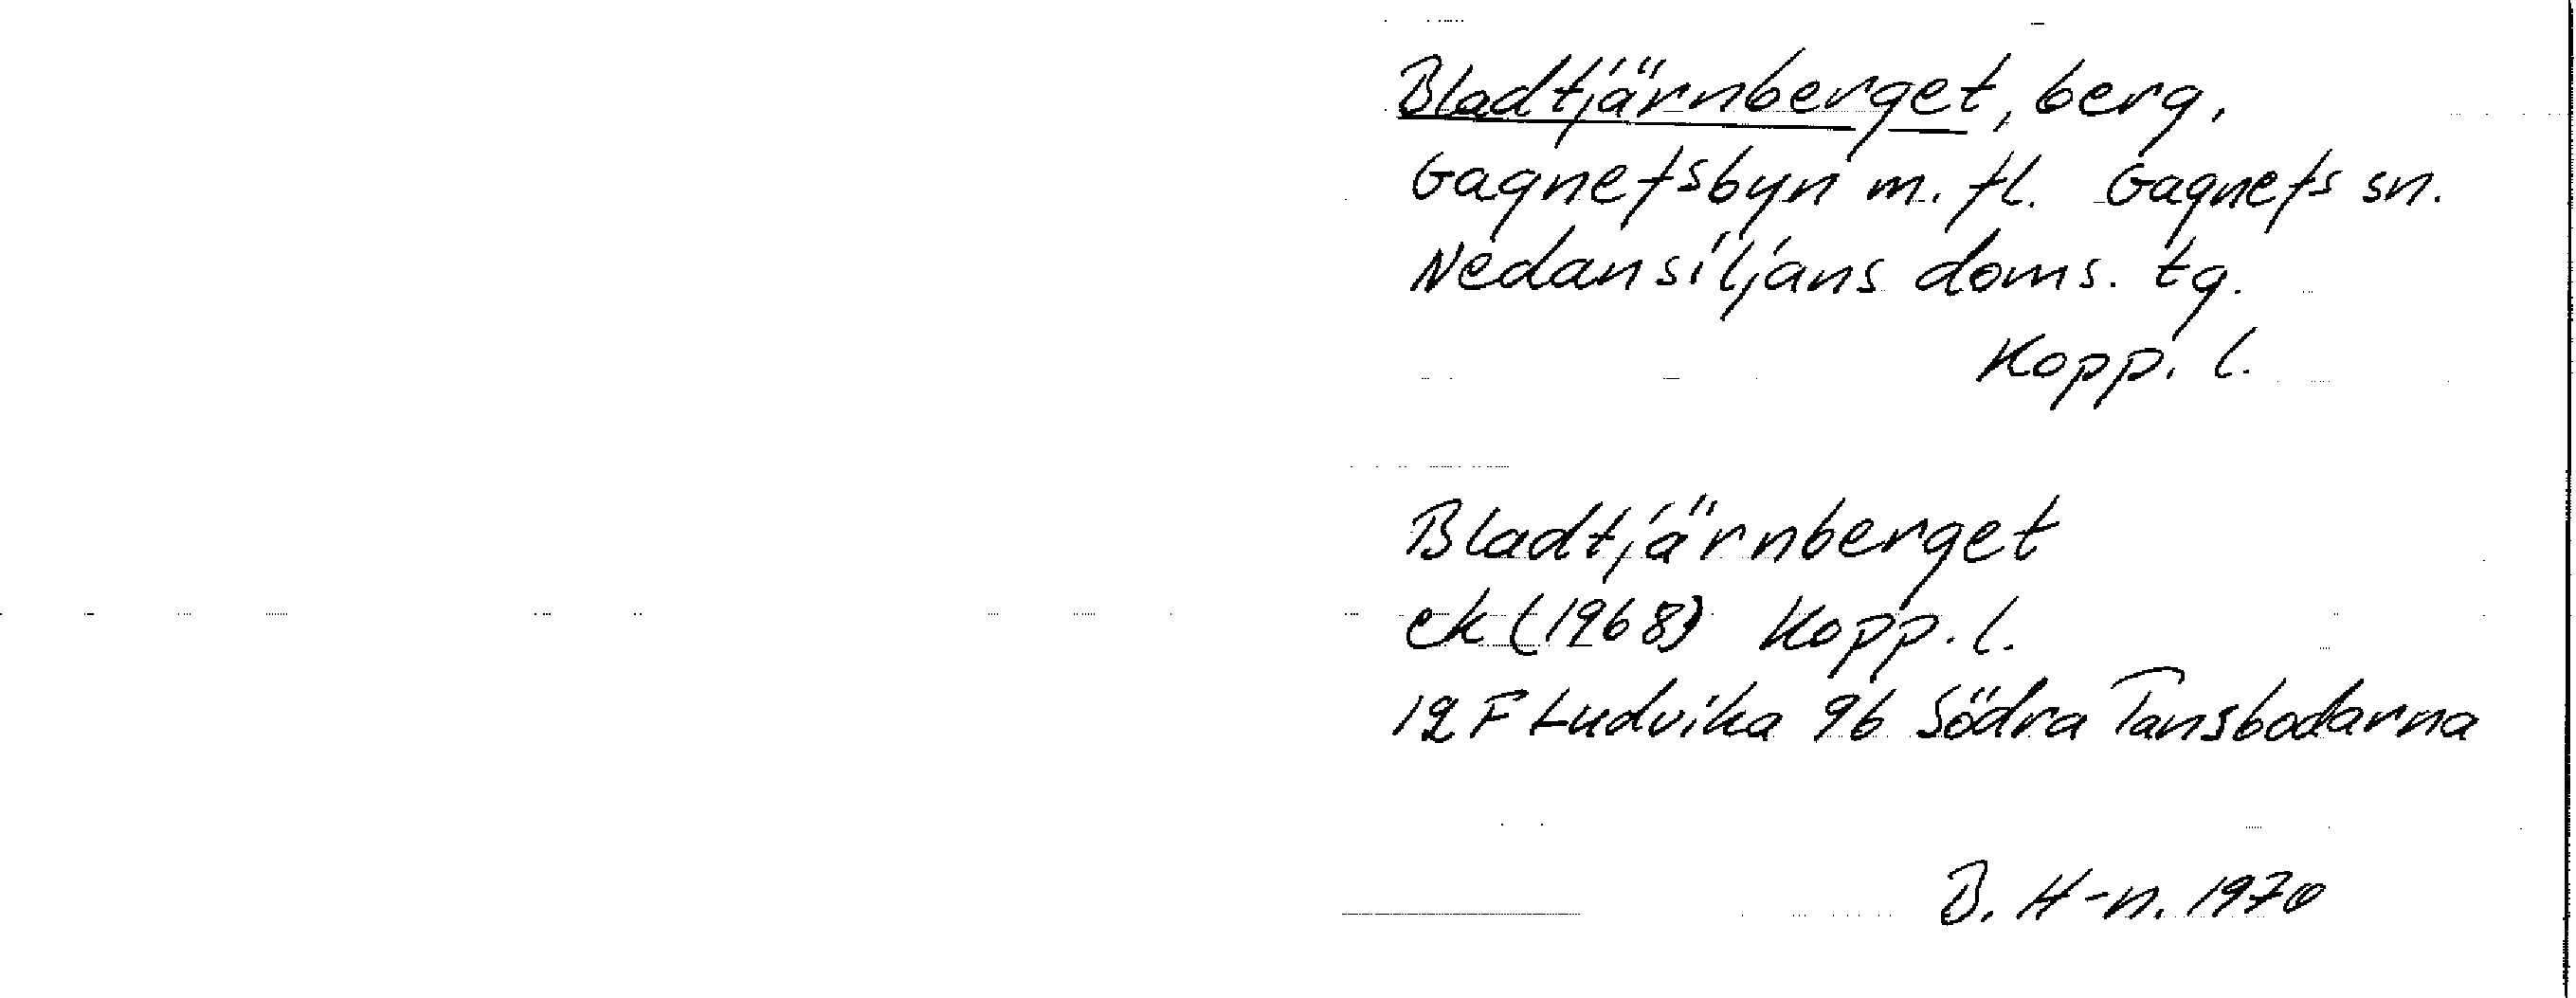 Bladtjärnberget, berg,
Gagnefsbyn m. fl. Gagnefs sn.
Nedansiljans doms. tg.
Kopp. l.
Bladtjärnberget
ek (1968) Kopp. l.
12 F Ludvika 9b Södra Tansbodarna
B. H-n. 1970